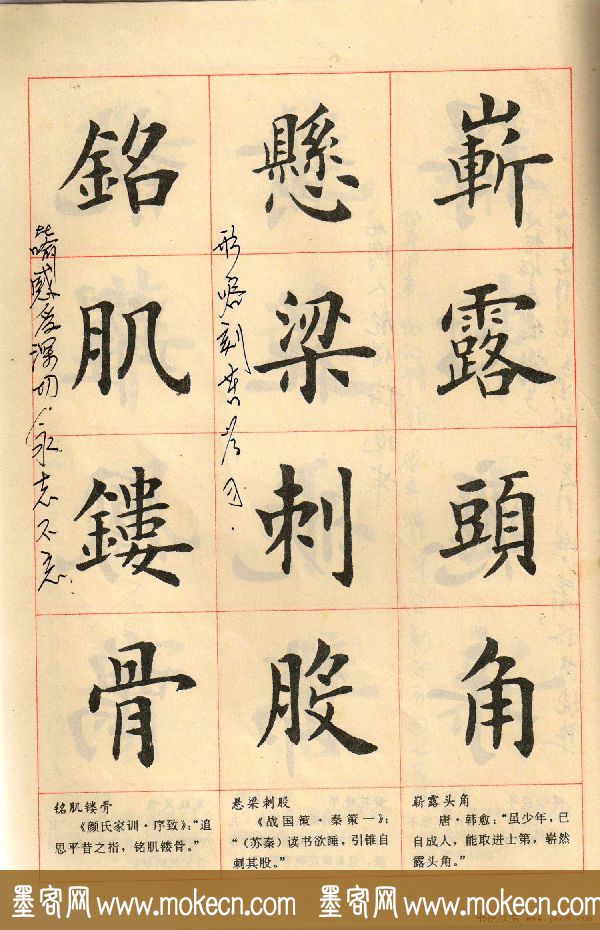 嶄露頭角
懸梁刺股
形容刻苦学习.
銘肌鏤骨
感受深切.永志不忘
崭露头角
唐·韩愈：“虽少年，已
自成人，能取进士第，崭然
露头角。”
悬梁刺股
《战国策·秦策一》：
“（苏秦）读书欲睡，引锥自
刺其股。”
铭肌镂骨
《颜氏家训·序致》：“追
思平昔之指，铭肌镂骨。”
墨客网 www.mokecn.com 墨客网 www.mokecn.com